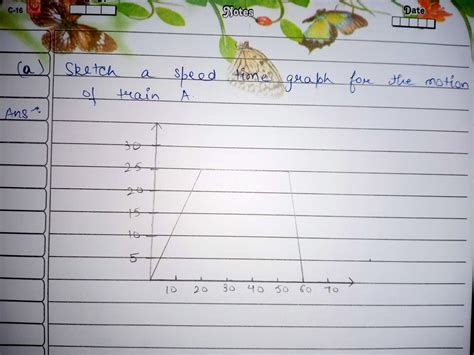 C-16
Notes
Date
(a) Sketch a speed time graph for the motion
of train A.
Ans:
30
25
20
15
10
5
10 20 30 40 50 60 70